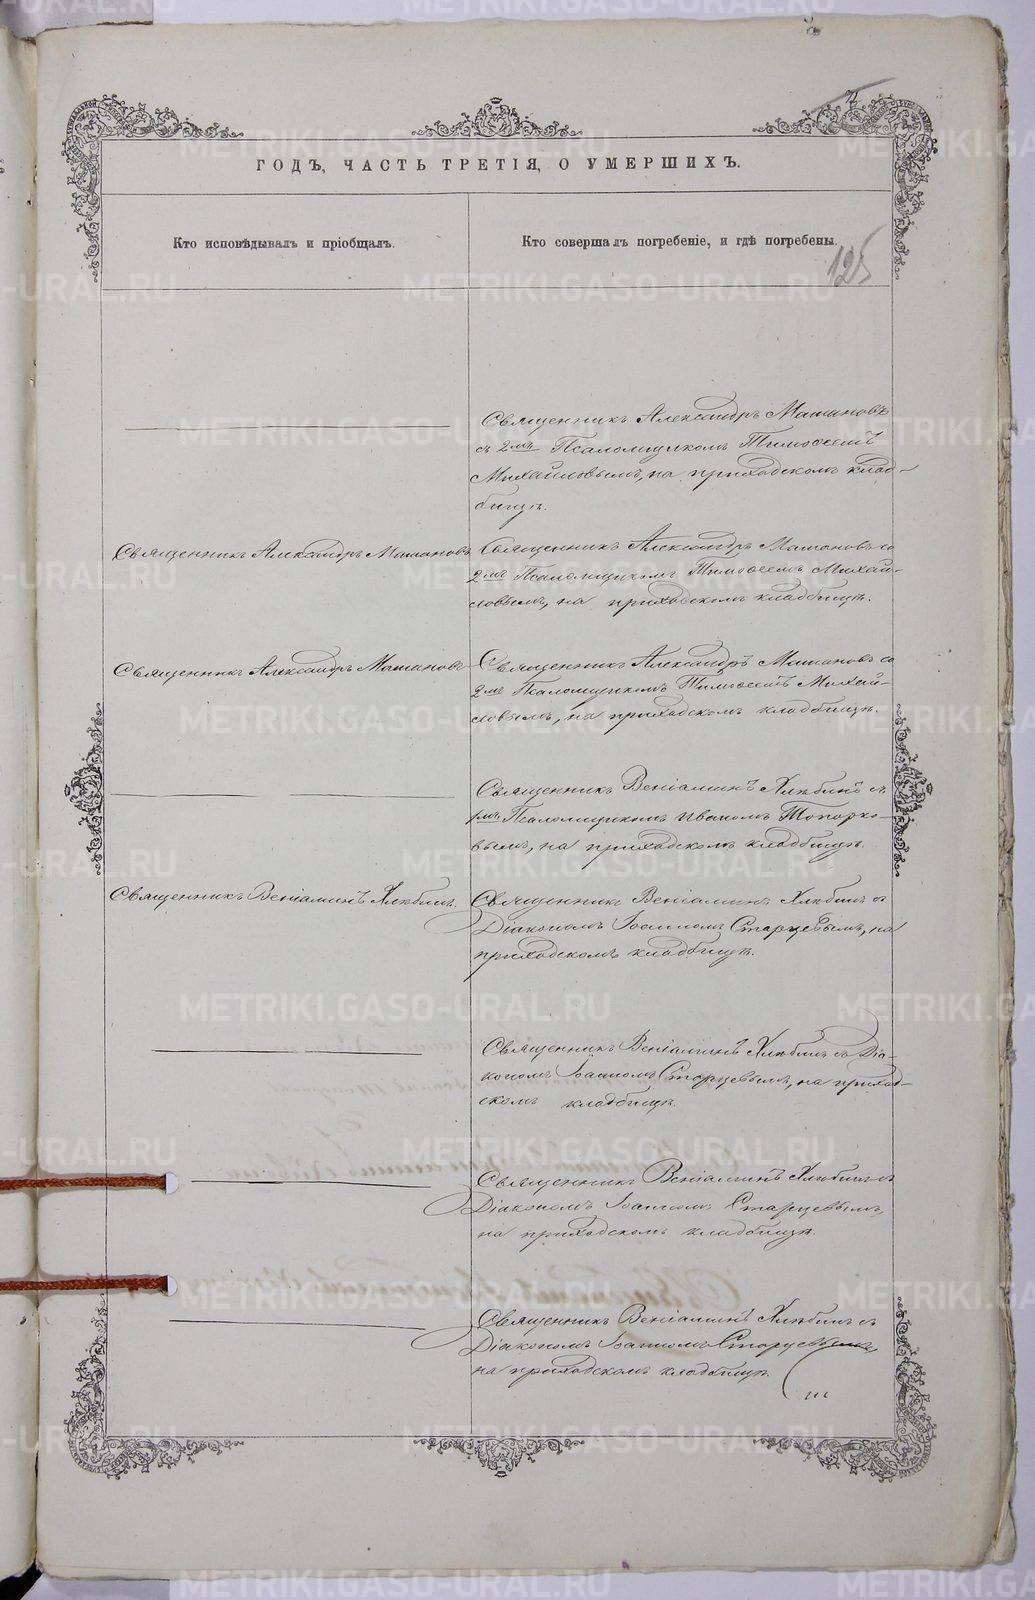 ГОДЪ, ЧАСТЬ ТРЕТІЯ, О УМЕРШИХЪ.
Кто исповѣдывалъ и пріобщалъ.
Кто совершалъ погребеніе, и гдѣ погребены.
125
Священникъ Александръ Мамановъ
съ 2мъ Псаломщикомъ Тимоѳеемъ
Михайловымъ, на приходскомъ клад-
бищѣ.
Священникъ Александръ Мамановъ
Священникъ Александръ Мамановъ со
2мъ Псаломщикомъ Тимоѳеемъ Михай-
ловымъ, на приходскомъ кладбищѣ.
Священникъ Александръ Мамановъ
Священникъ Александръ Мамановъ со
2мъ Псаломщикомъ Тимоѳеемъ Михай-
ловымъ, на приходскомъ кладбищѣ.
Священникъ Веніаминъ Хлѣбинъ съ
1мъ Псаломщикомъ Иваномъ Топорко-
вымъ, на приходскомъ кладбищѣ.
Священникъ Веніаминъ Хлѣбинъ.
Священникъ Веніаминъ Хлѣбинъ съ
Діакономъ Іоанномъ Старцевымъ, на
приходскомъ кладбищѣ.
Священникъ Веніаминъ Хлѣбинъ съ Діа-
кономъ Іоанномъ Старцевымъ, на приход-
скомъ кладбищѣ.
Священникъ Веніаминъ Хлѣбинъ съ
Діакономъ Іоанномъ Старцевымъ,
на приходскомъ кладбищѣ.
Священникъ Веніаминъ Хлѣбинъ съ
Діакономъ Іоанномъ Старцевымъ
на приходскомъ кладбищѣ.
METRIKI.GASO-URAL.RU